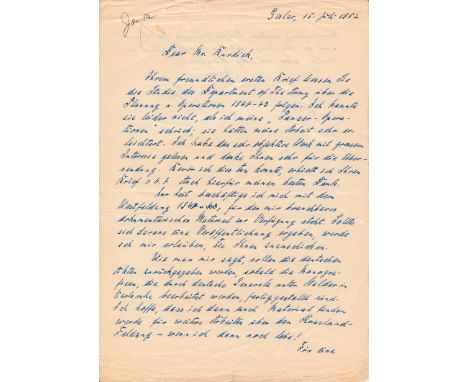 15. Feb. 1952
Dear Mr. Kurdick,
Ihrem freundlichen ersten Brief liessen Sie
die Studie des Department of the Army über die
Planung u. Operationen 1940-42 folgen. Ich kannte
sie leider nicht, als ich meine "Panzer-Opera-
tionen" schrieb; sie hätte meine Arbeit sehr er-
leichtert. Ich habe das sehr objektive Werk mit grossem
Interesse gelesen und danke Ihnen sehr für die Über-
sendung. Bevor ich dies tun konnte, erhielt ich Ihren
Brief v. 6.7. Auch hierfür meinen besten Dank.
Zur Zeit beschäftige ich mich mit dem
Westfeldzug 1940, für den mir brauchbares
dokumentarisches Material zur Verfügung steht. Sollte
sich daraus eine Veröffentlichung ergeben, werde
ich mir erlauben, sie Ihnen zuzuschicken.
Wie man mir sagt, sollen die deutschen
Akten zurückgegeben werden, sobald die Monogra-
fieen, die durch deutsche Generale unter Halder in
Karlsruhe bearbeitet werden, fertiggestellt sind.
Ich hoffe, dass ich dann noch Material finden
werde für weitere Arbeiten über den Russland-
Feldzug - wenn ich dann noch lebe!
Für eine